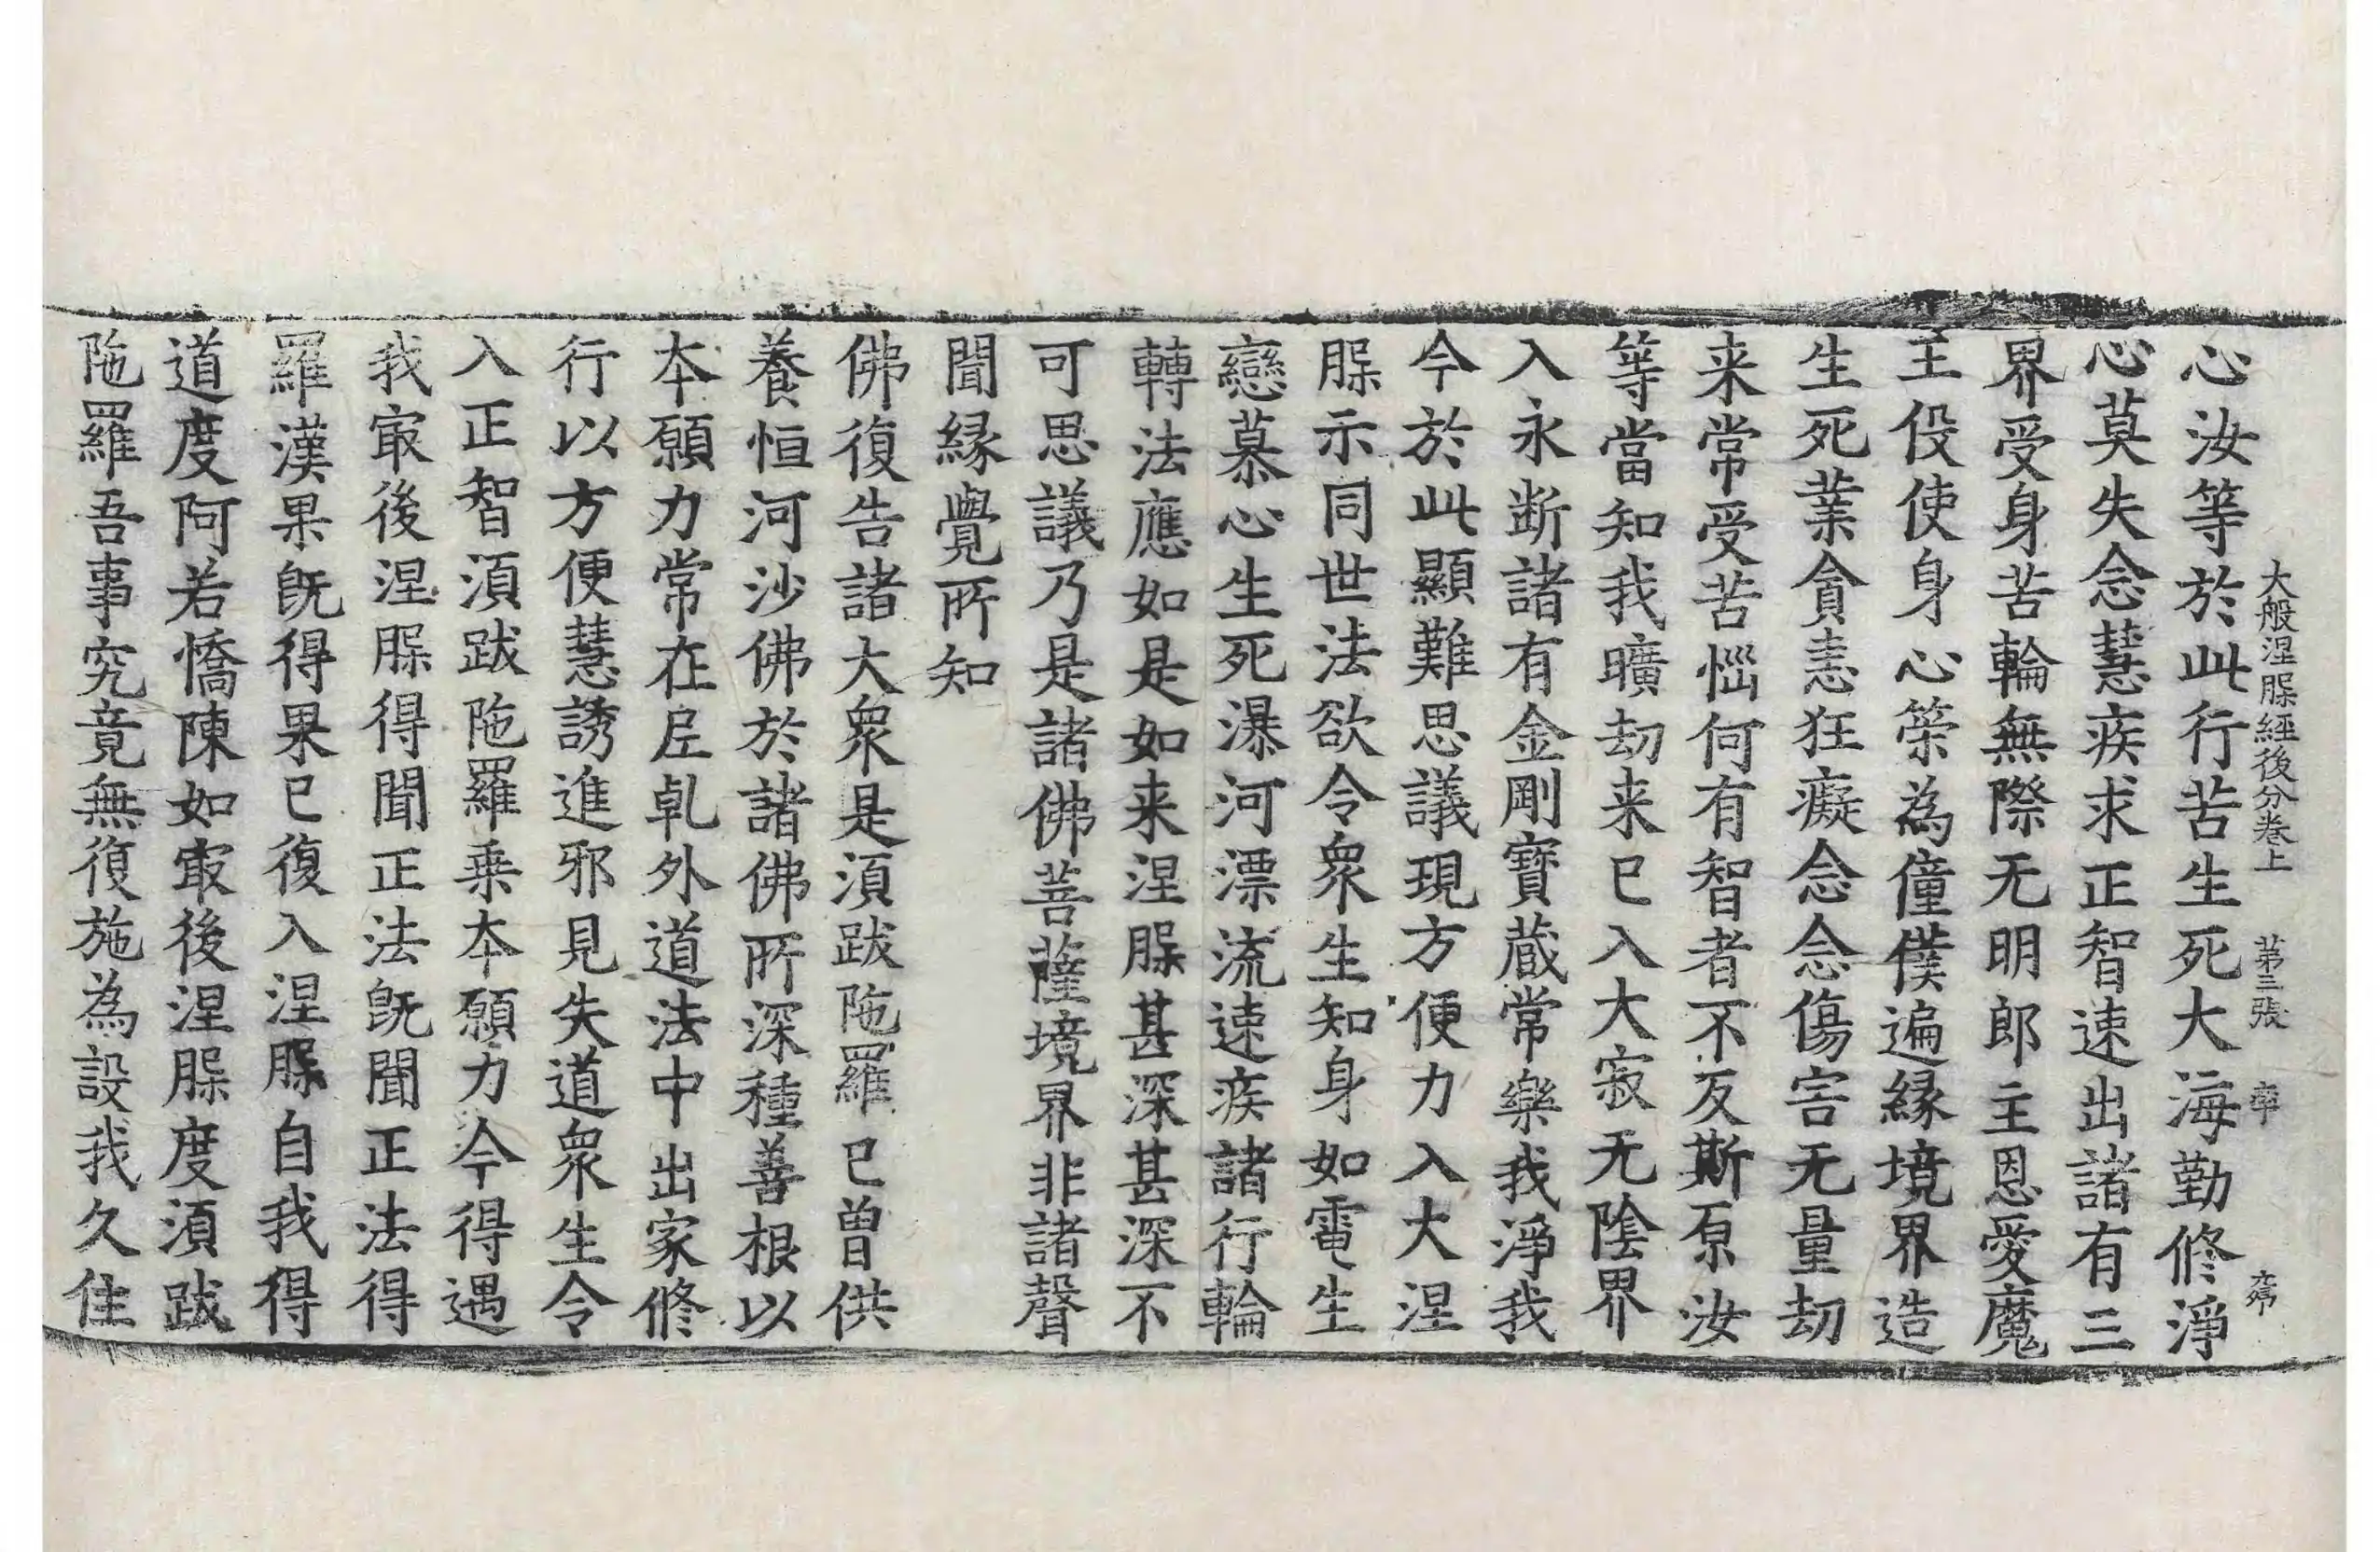 大般涅槃經後分卷上 第三張 率
心汝等於此行苦生死大海勤修淨
心莫失念慧疾求正智速出諸有三
界受身苦輪無際无明郎主恩愛魔
王伇使身心策為僮僕遍緣境界造
生死業貪恚狂癡念念傷害无量劫
来常受苦惱何有智者不反斯原汝
等當知我曠劫来已入大寂无陰界
入永断諸有金剛寶藏常樂我淨我
今於此顯難思議現方便力入大涅
槃示同世法欲令衆生知身如電生
戀慕心生死瀑河漂流速疾諸行輪
轉法應如是如来涅槃甚深甚深不
可思議乃是諸佛菩薩境界非諸聲
聞緣覺所知
佛復告諸大衆是湏跋陁羅已曾供
養恒河沙佛於諸佛所深種善根以
本願力常在尼乹外道法中出家修
行以方便慧誘進邪見失道衆生令
入正智湏跋陁羅乘本願力今得遇
我㝡後涅槃得聞正法旣聞正法得
羅漢果旣得果已復入涅槃自我得
道度阿若憍陳如㝡後涅槃度湏跋
陁羅吾事究竟無復施為設我久住